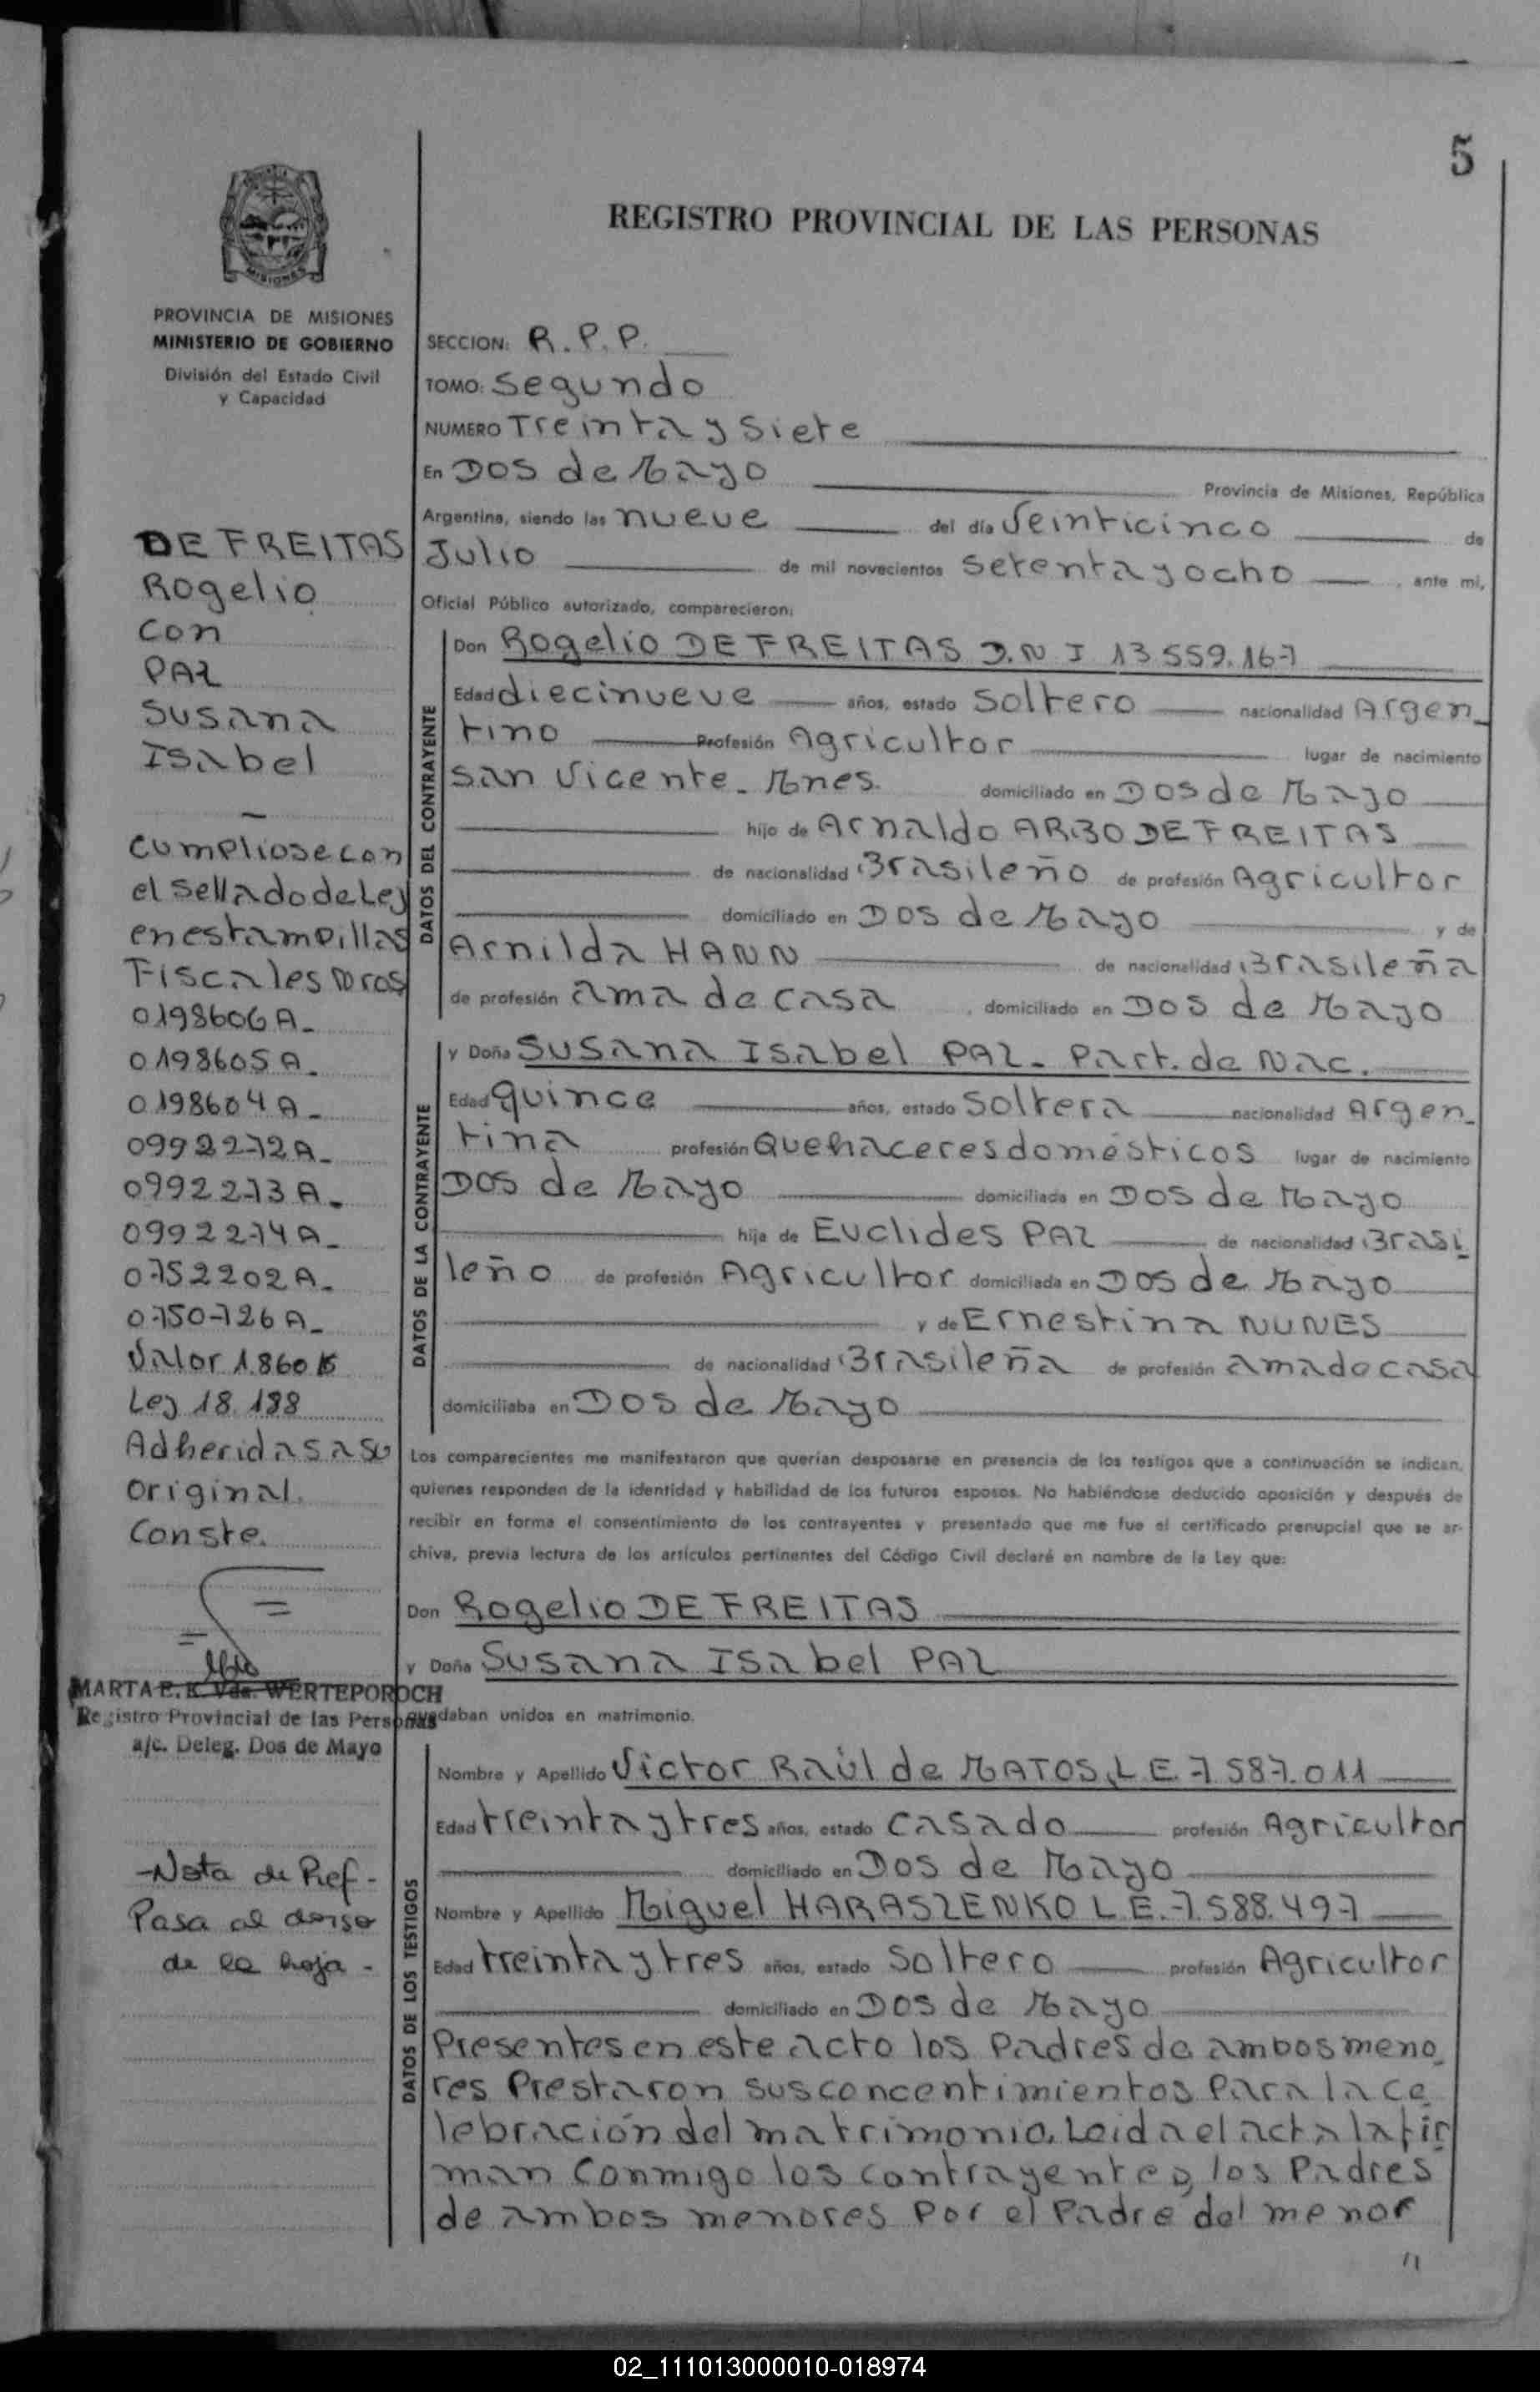 5
REGISTRO PROVINCIAL DE LAS PERSONAS
MISIONES
PROVINCIA DE MISIONES
MINISTERIO DE GOBIERNO
División del Estado Civil
y Capacidad
DE FREITAS
Rogelio
con
PAZ
Susana
Isabel
Cumpliose con
el Sellado de Ley
en estampillas
Fiscales Nros
0198606 A-
0198605 A-
0198604 A-
0992272 A-
0992273 A-
0992274 A-
0752202 A-
0750726 A-
Valor 1.860 $
Ley 18.188
Adheridas a su
original.
Conste.
MARTA E. K. Vda. WERTEPOROCH
Registro Provincial de las Personas
a/c. Deleg. Dos de Mayo
-Nota de Ref-
Pasa al dorso
de la hoja-
SECCION: R.P.P.
TOMO: Segundo
NUMERO Treinta y Siete
En DOS de Mayo Provincia de Misiones, República
Argentina, siendo las nueve del día Veinticinco de
Julio de mil novecientos setenta y ocho, ante mi,
Oficial Público autorizado, comparecieron:
DATOS DEL CONTRAYENTE
Don Rogelio DE FREITAS D.N I 13 559.167
Edad diecinueve años, estado Soltero nacionalidad Argen-
tino Profesión Agricultor lugar de nacimiento
San Vicente - Mnes. domiciliado en DOS de Mayo
hijo de Arnaldo ARBO DE FREITAS
de nacionalidad Brasileño de profesión Agricultor
domiciliado en DOS de Mayo y de
Arnilda HANN de nacionalidad Brasileña
de profesión ama de casa, domiciliado en DOS de Mayo
DATOS DE LA CONTRAYENTE
y Doña Susana Isabel PAZ - Part. de Nac.
Edad quince años, estado Soltera nacionalidad Argen-
tina profesión Quehaceres domésticos lugar de nacimiento
DOS de Mayo domiciliada en DOS de Mayo
hija de Euclides PAZ de nacionalidad Brasi-
leño de profesión Agricultor domiciliada en DOS de Mayo
y de Ernestina NUNES
de nacionalidad Brasileña de profesión ama de casa
domiciliaba en DOS de Mayo
Los comparecientes me manifestaron que querían desposarse en presencia de los testigos que a continuación se indican,
quienes responden de la identidad y habilidad de los futuros esposos. No habiéndose deducido oposición y después de
recibir en forma el consentimiento de los contrayentes y presentado que me fue el certificado prenupcial que se ar-
chiva, previa lectura de los artículos pertinentes del Código Civil declaré en nombre de la Ley que:
Don Rogelio DE FREITAS
y Doña Susana Isabel PAZ
quedaban unidos en matrimonio.
DATOS DE LOS TESTIGOS
Nombre y Apellido Victor Raúl de MATOS, L E. 7 587.011
Edad treinta y tres años, estado Casado profesión Agricultor
domiciliado en DOS de Mayo
Nombre y Apellido Miguel HARASZENKO L.E. 7.588.497
Edad treinta y tres años, estado Soltero profesión Agricultor
domiciliado en DOS de Mayo
Presentes en este acto los Padres de ambos meno-
res Prestaron sus concentimientos Para la ce
lebración del matrimonio. Leida el acta la fir
man Conmigo los contrayentes, los Padres
de ambos menores Por el Padre del menor
//
02_111013000010-018974